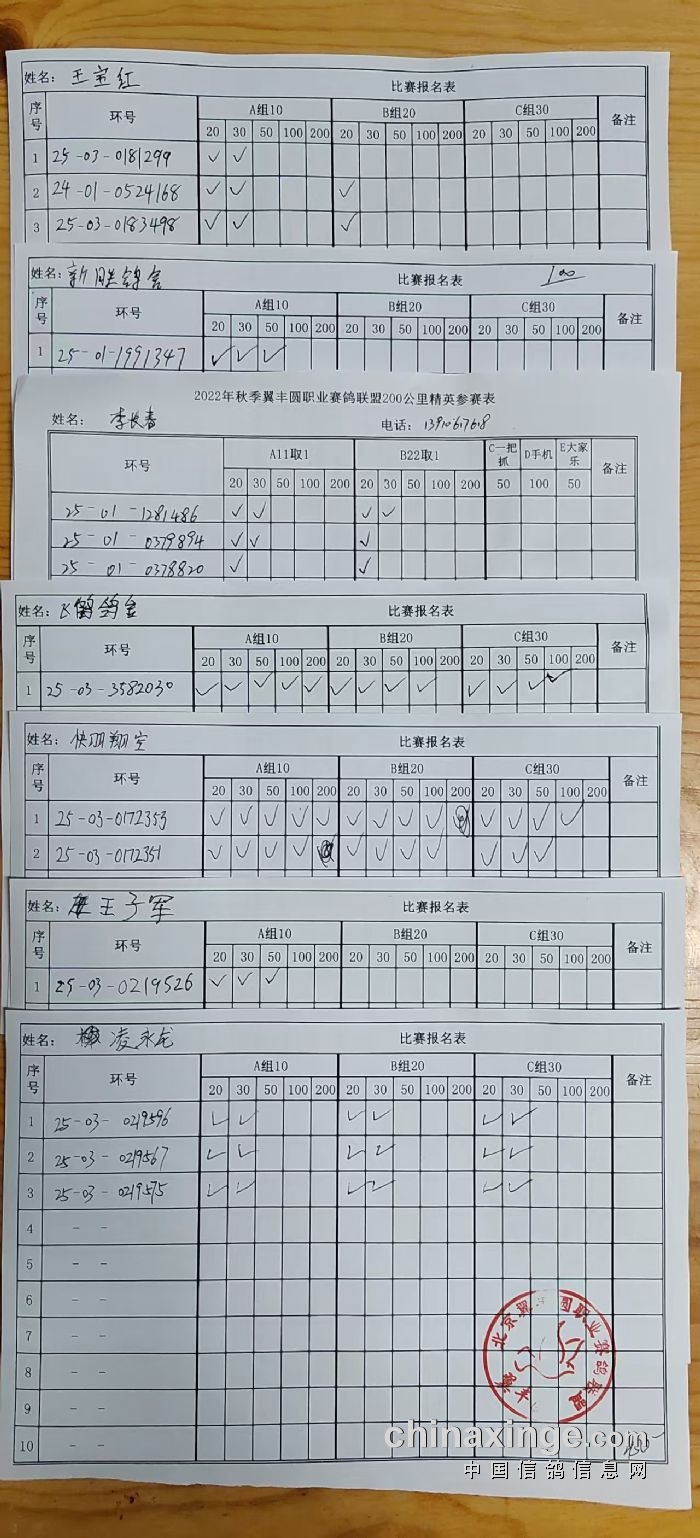 姓名: 王宝红 比赛报名表
序号 环号 A组10 B组20 C组30 备注
20 30 50 100 200 20 30 50 100 200 20 30 50 100 200
1 25-03-0181299 ✓ ✓
2 24-01-0524168 ✓ ✓ ✓
3 25-03-0183498 ✓ ✓ ✓
姓名: 新胜鸽舍 比赛报名表 100
序号 环号 A组10 B组20 C组30 备注
20 30 50 100 200 20 30 50 100 200 20 30 50 100 200
1 25-01-1991347 ✓ ✓ ✓
2022年秋季翼丰圆职业赛鸽联盟200公里精英参赛表
姓名: 李长春 电话: 13910617618
环号 A11取1 B22取1 C一把抓 D手机 E大家乐 备注
20 30 50 100 200 20 30 50 100 200 50 100 50
25-01-1281486 ✓ ✓ ✓ ✓
25-01-0379894 ✓ ✓ ✓
25-01-0378820 ✓ ✓
姓名: 飞鸽鸽舍 比赛报名表
序号 环号 A组10 B组20 C组30 备注
20 30 50 100 200 20 30 50 100 200 20 30 50 100 200
1 25-03-3582030 ✓ ✓ ✓ ✓ ✓ ✓ ✓ ✓ ✓ ✓ ✓ ✓ ✓
姓名: 快羽翔空 比赛报名表
序号 环号 A组10 B组20 C组30 备注
20 30 50 100 200 20 30 50 100 200 20 30 50 100 200
1 25-03-0172353 ✓ ✓ ✓ ✓ ✓ ✓ ✓ ✓ ✓ ✓ ✓ ✓ ✓
2 25-03-0172351 ✓ ✓ ✓ ✓ ✓ ✓ ✓ ✓ ✓ ✓ ✓
姓名: 王子军 比赛报名表
序号 环号 A组10 B组20 C组30 备注
20 30 50 100 200 20 30 50 100 200 20 30 50 100 200
1 25-03-0219526 ✓ ✓ ✓
姓名: 凌永龙 比赛报名表
序号 环号 A组10 B组20 C组30 备注
20 30 50 100 200 20 30 50 100 200 20 30 50 100 200
1 25-03-0219596 ✓ ✓ ✓ ✓ ✓ ✓
2 25-03-0219567 ✓ ✓ ✓ ✓ ✓ ✓
3 25-03-0219575 ✓ ✓ ✓ ✓ ✓ ✓
4 - -
5 - -
6 - -
7 - -
8 - -
9 - -
10 - -
北京翼丰圆职业赛鸽联盟
chinaxinge.com
中国信鸽信息网